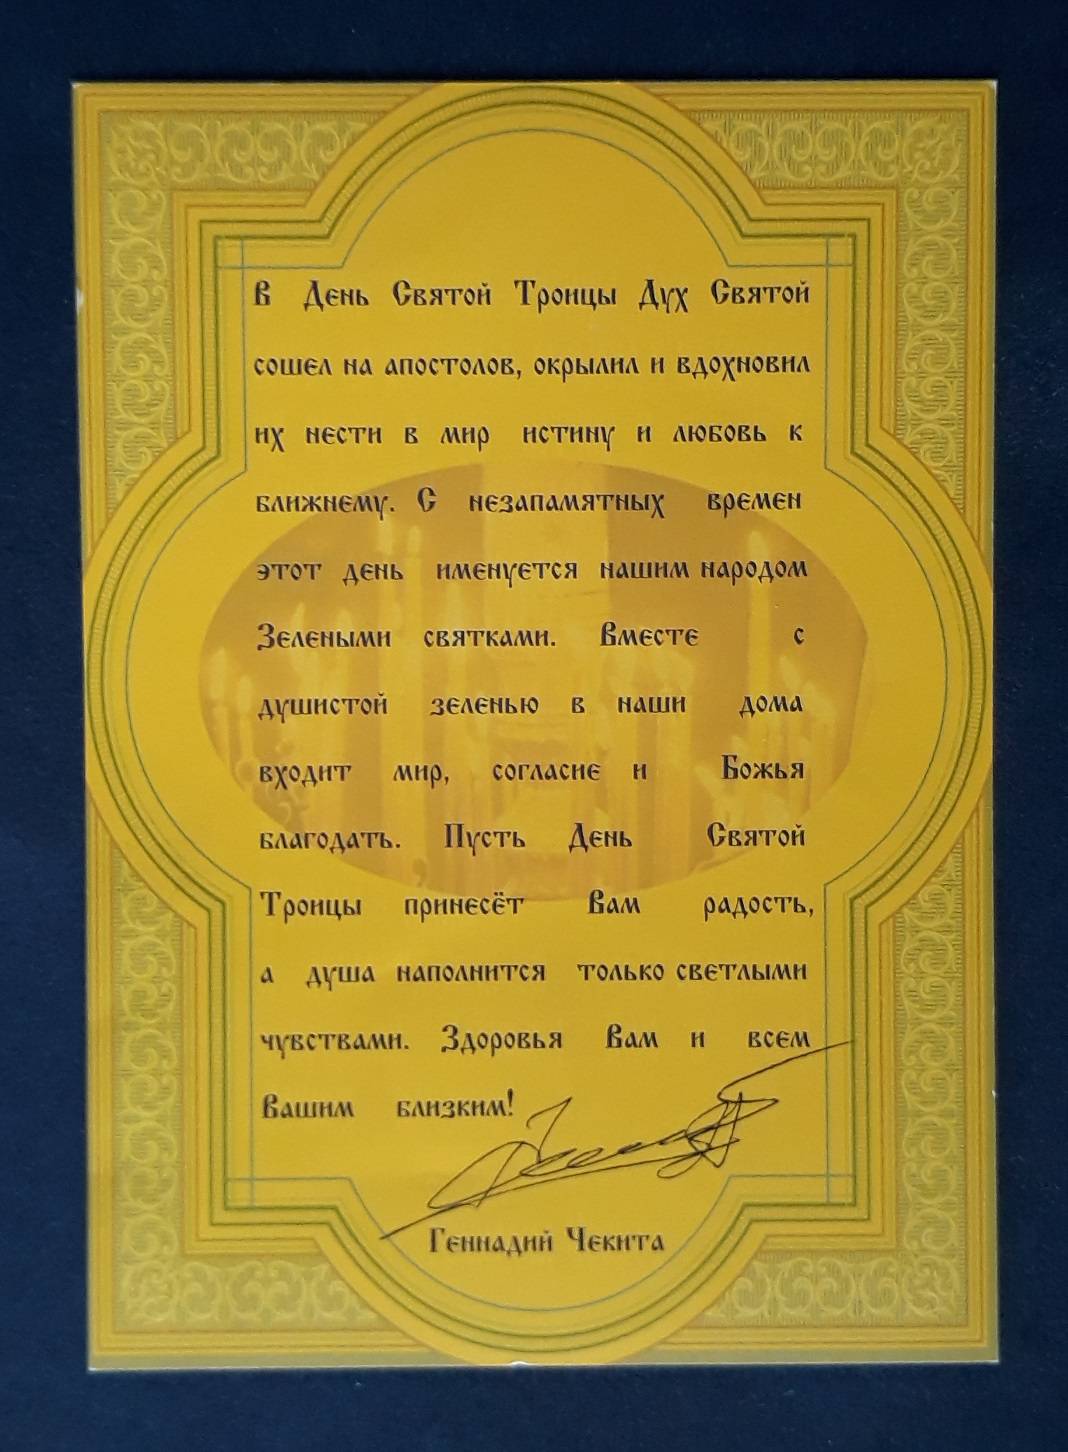 В День Святой Троицы Дух Святой
сошел на апостолов, окрылил и вдохновил
их нести в мир истину и любовь к
ближнему. С незапамятных времен
этот день именуется нашим народом
Зелеными святками. Вместе с
душистой зеленью в наши дома
входит мир, согласие и Божья
благодать. Пусть День Святой
Троицы принесёт Вам радость,
а душа наполнится только светлыми
чувствами. Здоровья Вам и всем
Вашим близким!
Геннадий Чекита